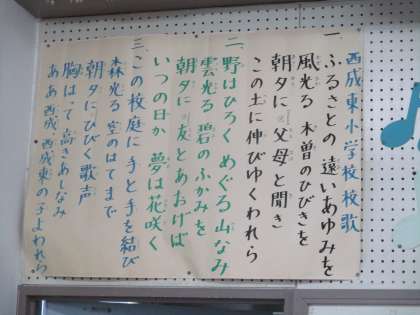 西成東小学校校歌
一、ふるさとの遠いあゆみを
風光る木曽のひびきを
朝夕に父母と聞き
この土に伸びゆくわれら
二、野はひろくめぐる山なみ
雲光る碧のふかみを
朝夕に友とあおげば
いつの日か夢は花咲く
三、この校庭に手と手を結び
森光る空のはてまで
朝夕にひびく歌声
胸はって高きあしなみ
ああ西成、西成東の子よわれら